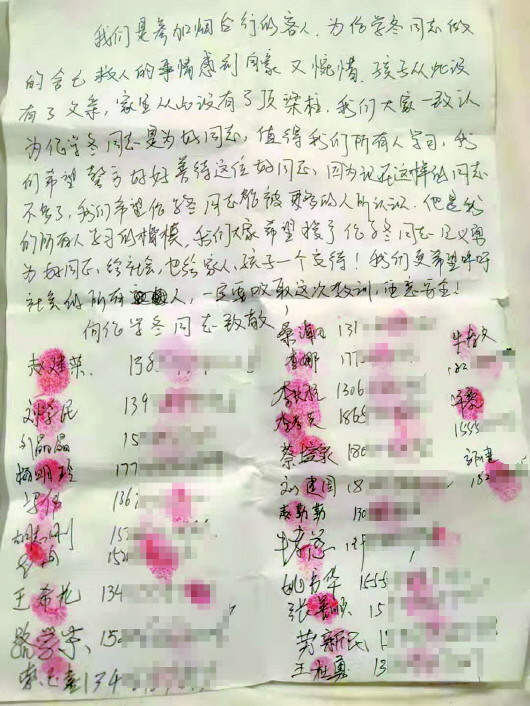 我们是参加烟台行的客人,为任学冬同志做
的舍己救人的事情感到同豪又惋惜,孩子从此没
有了父亲,家里从此没有了顶梁柱,我们大家一致认
为任学冬同志是为好同志,值得我们所有人学习,我
们希望警方好好善待这位好同志,因为现在这样的同志
不多了,我们希望任学冬同志能被更多的人所认识,他是我
们所有人学习的楷模,我们大家希望授予任学冬同志见义勇
为好同志,给社会,也给家人、孩子一个交待!我们更希望呼吁
社会的所有人,一定要吸取这次教训,注意安全!
向任学冬同志致敬
赵建荣 138
刘学民 139
晶晶 15
杨明玲 177
136
刚 15
152
王希花 134
15
134
131
娜 177
1306
1865
蔡培泉 186
刘建国 18
赵勤勤 130
姚书华 1555
张 15
苑新民 1
王桂勇 13
182
1555
182